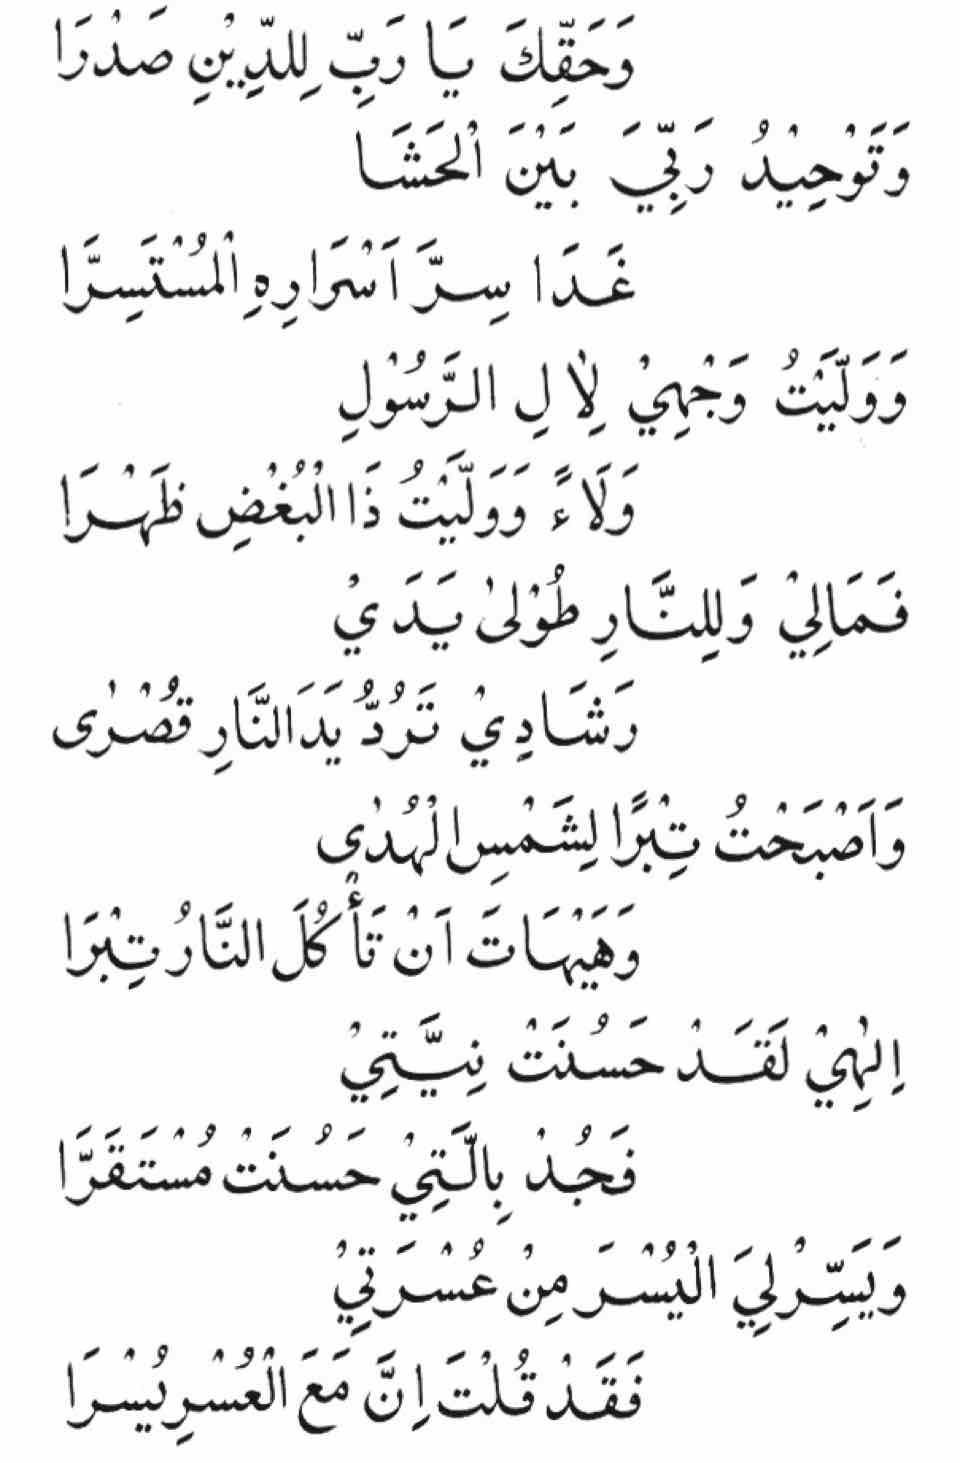 وَحَقِّكَ يَا رَبِّ لِلدِّيْنِ صَدْرَا
وَتَوْحِيْدُ رَبِّيَ بَيْنَ الْحَشَا
غَدَا سِرَّ اَسْرَارِهِ الْمُسْتَسِرَّا
وَوَلَّيْتُ وَجْهِيْ لِاٰلِ الرَّسُوْلِ
وَلَاءً وَوَلَّيْتُ ذَا الْبُغْضِ ظَهْرَا
فَمَالِيْ وَلِلنَّارِ طُوْلىٰ يَدَيْ
رَشَادِيْ تَرُدُّ يَدَ النَّارِ قُصْرٰى
وَاَصْبَحْتُ تِبْرًا لِشَمْسِ الْهُدٰى
وَهَيْهَاتَ اَنْ تَأْكُلَ النَّارُ تِبْرَا
اِلٰهِيْ لَقَدْ حَسُنَتْ نِيَّتِيْ
فَجُدْ بِالَّتِيْ حَسُنَتْ مُسْتَقَرَّا
وَيَسِّرْ لِيَ الْيُسْرَ مِنْ عُسْرَتِيْ
فَقَدْ قُلْتَ اِنَّ مَعَ الْعُسْرِ يُسْرَا